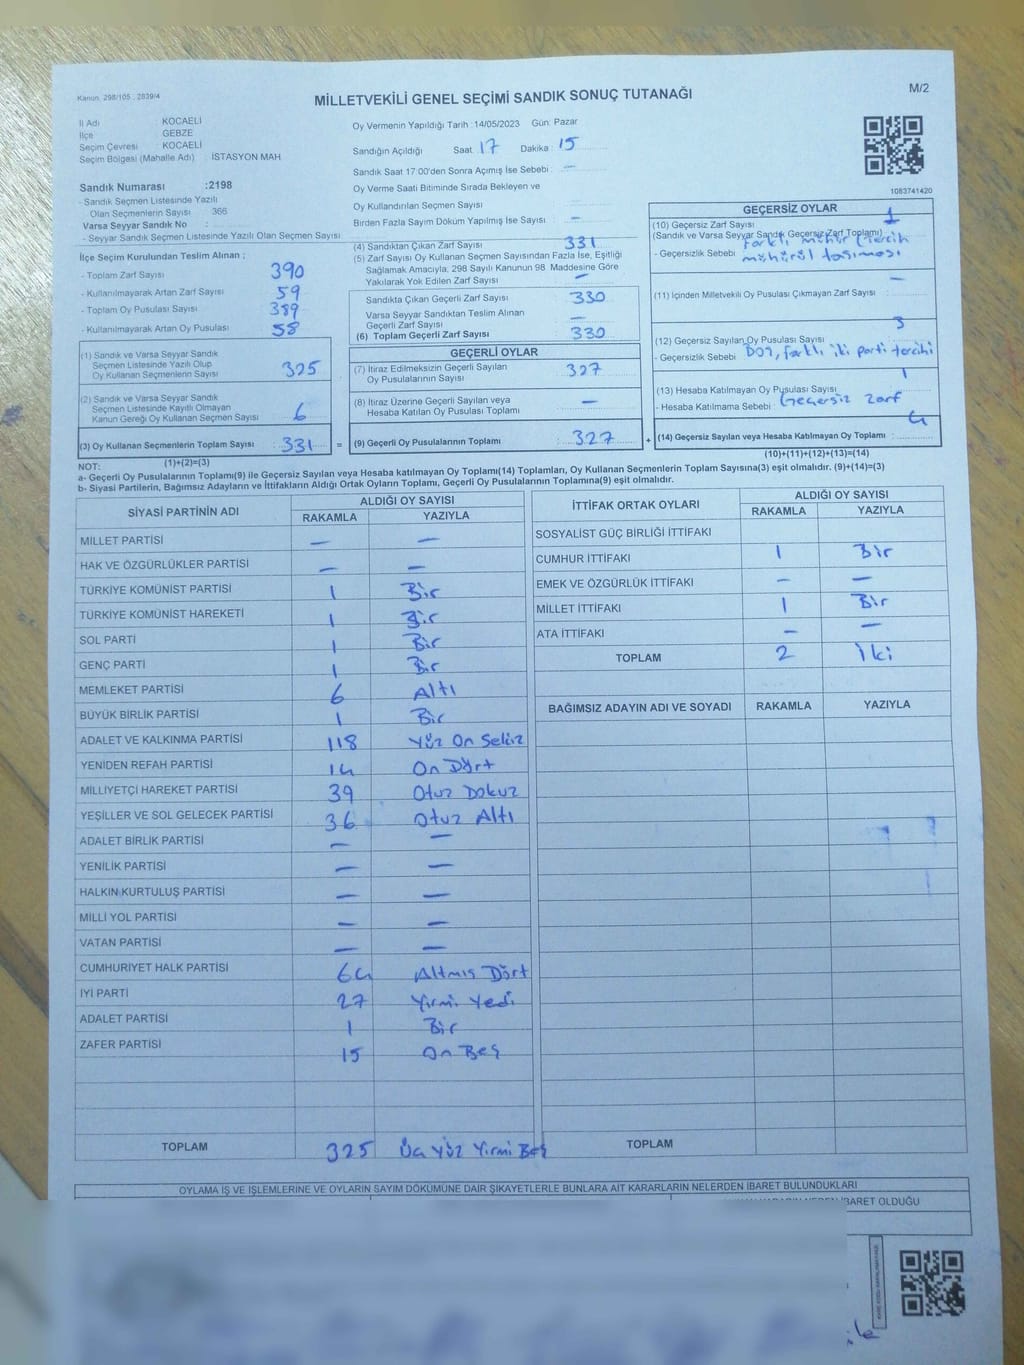 Kanun, 298/105 , 2839/4
MİLLETVEKİLİ GENEL SEÇİMİ SANDIK SONUÇ TUTANAĞI
M/2
İl Adı : KOCAELİ
İlçe : GEBZE
Seçim Çevresi : KOCAELİ
Seçim Bölgesi (Mahalle Adı) : İSTASYON MAH
Sandık Numarası :2198
- Sandık Seçmen Listesinde Yazılı
Olan Seçmenlerin Sayısı 366
Varsa Seyyar Sandık No :
- Seyyar Sandık Seçmen Listesinde Yazılı Olan Seçmen Sayısı :
Oy Vermenin Yapıldığı Tarih :14/05/2023 Gün: Pazar
Sandığın Açıldığı Saat : 17 Dakika : 15
Sandık Saat 17:00'den Sonra Açımış İse Sebebi : —
Oy Verme Saati Bitiminde Sırada Bekleyen ve
Oy Kullandırılan Seçmen Sayısı : —
Birden Fazla Sayım Döküm Yapılmış İse Sayısı : —
1083741420
İlçe Seçim Kurulundan Teslim Alınan ;
- Toplam Zarf Sayısı : 390
- Kullanılmayarak Artan Zarf Sayısı : 59
- Toplam Oy Pusulası Sayısı : 389
- Kullanılmayarak Artan Oy Pusulası : 58
(1) Sandık ve Varsa Seyyar Sandık
Seçmen Listesinde Yazılı Olup
Oy Kullanan Seçmenlerin Sayısı : 325
(2) Sandık ve Varsa Seyyar Sandık
Seçmen Listesinde Kayıtlı Olmayan
Kanun Gereği Oy Kullanan Seçmen Sayısı : 6
(3) Oy Kullanan Seçmenlerin Toplam Sayısı : 331 =
(1)+(2)=(3)
(4) Sandıktan Çıkan Zarf Sayısı : 331
(5) Zarf Sayısı Oy Kullanan Seçmen Sayısından Fazla İse, Eşitliği
Sağlamak Amacıyla, 298 Sayılı Kanunun 98. Maddesine Göre
Yakılarak Yok Edilen Zarf Sayısı : —
Sandıkta Çıkan Geçerli Zarf Sayısı : 330
Varsa Seyyar Sandıktan Teslim Alınan
Geçerli Zarf Sayısı : —
(6) Toplam Geçerli Zarf Sayısı : 330
GEÇERLİ OYLAR
(7) İtiraz Edilmeksizin Geçerli Sayılan
Oy Pusulalarının Sayısı : 327
(8) İtiraz Üzerine Geçerli Sayılan veya
Hesaba Katılan Oy Pusulası Toplamı : —
(9) Geçerli Oy Pusulalarının Toplamı : 327 +
GEÇERSİZ OYLAR
(10) Geçersiz Zarf Sayısı : 1
(Sandık ve Varsa Seyyar Sandık Geçersiz Zarf Toplamı)
- Geçersizlik Sebebi : farklı mühür (tercih
mühürü taşıması
(11) İçinden Milletvekili Oy Pusulası Çıkmayan Zarf Sayısı : —
(12) Geçersiz Sayılan Oy Pusulası Sayısı : 3
- Geçersizlik Sebebi : Boş, farklı iki parti tercihi
(13) Hesaba Katılmayan Oy Pusulası Sayısı : 1
- Hesaba Katılmama Sebebi : Geçersiz zarf
(14) Geçersiz Sayılan veya Hesaba Katılmayan Oy Toplamı : 4
(10)+(11)+(12)+(13)=(14)
NOT:
a- Geçerli Oy Pusulalarının Toplamı(9) ile Geçersiz Sayılan veya Hesaba katılmayan Oy Toplamı(14) Toplamları, Oy Kullanan Seçmenlerin Toplam Sayısına(3) eşit olmalıdır. (9)+(14)=(3)
b- Siyasi Partilerin, Bağımsız Adayların ve İttifakların Aldığı Ortak Oyların Toplamı, Geçerli Oy Pusulalarının Toplamına(9) eşit olmalıdır.
SİYASİ PARTİNİN ADI ALDIĞI OY SAYISI
RAKAMLA YAZIYLA
MİLLET PARTİSİ — —
HAK VE ÖZGÜRLÜKLER PARTİSİ — —
TÜRKİYE KOMÜNİST PARTİSİ 1 Bir
TÜRKİYE KOMÜNİST HAREKETİ 1 Bir
SOL PARTİ 1 Bir
GENÇ PARTİ 1 Bir
MEMLEKET PARTİSİ 6 Altı
BÜYÜK BİRLİK PARTİSİ 1 Bir
ADALET VE KALKINMA PARTİSİ 118 Yüz On Sekiz
YENİDEN REFAH PARTİSİ 14 On Dört
MİLLİYETÇİ HAREKET PARTİSİ 39 Otuz Dokuz
YEŞİLLER VE SOL GELECEK PARTİSİ 36 Otuz Altı
ADALET BİRLİK PARTİSİ — —
YENİLİK PARTİSİ — —
HALKIN KURTULUŞ PARTİSİ — —
MİLLİ YOL PARTİSİ — —
VATAN PARTİSİ — —
CUMHURİYET HALK PARTİSİ 64 Altmış Dört
İYİ PARTİ 27 Yirmi Yedi
ADALET PARTİSİ 1 Bir
ZAFER PARTİSİ 15 On Beş
TOPLAM 325 Üç Yüz Yirmi Beş
İTTİFAK ORTAK OYLARI ALDIĞI OY SAYISI
RAKAMLA YAZIYLA
SOSYALİST GÜÇ BİRLİĞİ İTTİFAKI
CUMHUR İTTİFAKI 1 Bir
EMEK VE ÖZGÜRLÜK İTTİFAKI — —
MİLLET İTTİFAKI 1 Bir
ATA İTTİFAKI — —
TOPLAM 2 İki
BAĞIMSIZ ADAYIN ADI VE SOYADI RAKAMLA YAZIYLA
TOPLAM
OYLAMA İŞ VE İŞLEMLERİNE VE OYLARIN SAYIM DÖKÜMÜNE DAİR ŞİKAYETLERLE BUNLARA AİT KARARLARIN NELERDEN İBARET BULUNDUKLARI
İBARET OLDUĞU